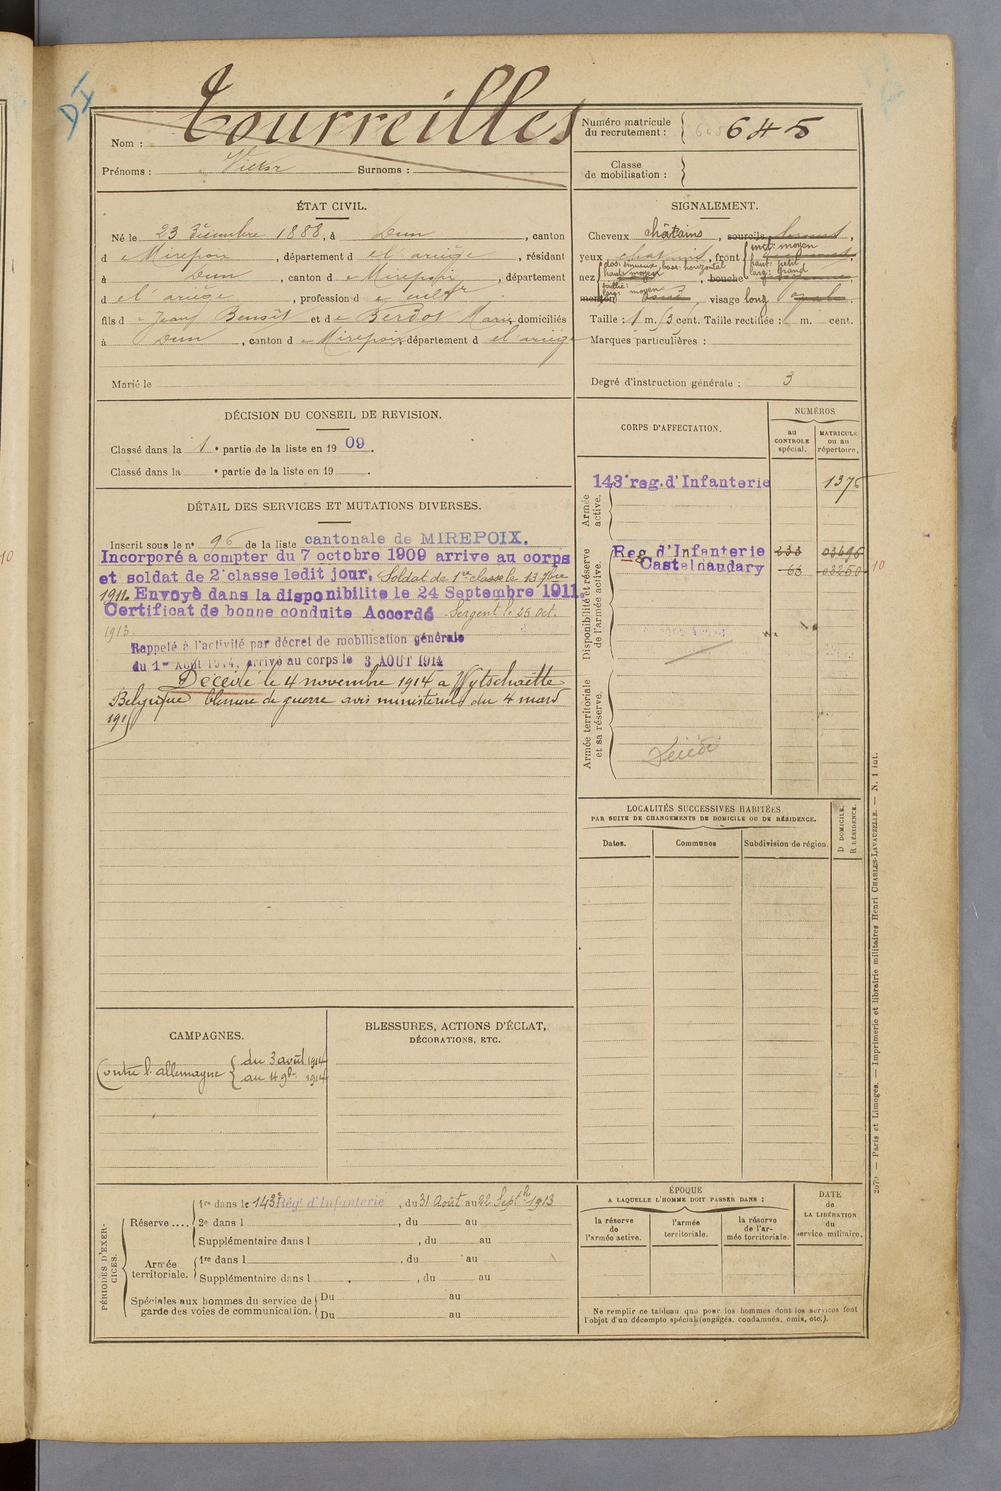 DI
Nom : Tourreilles
Prénoms : Victor Surnoms :
Numéro matricule du recrutement : 645
Classe de mobilisation :
ÉTAT CIVIL.
Né le 23 Décembre 1888, à Dun, canton
d e Mirepoix, département d e l'ariège, résidant
à Dun, canton d e Mirepoix, département
d e l'ariège, profession d e cultr
fils d e Jean Benoît et d e Berdot Marie domiciliés
à Dun, canton d e Mirepoix, département d e l'ariège
Marié le
SIGNALEMENT.
Cheveux châtains, sourcils
yeux châtains, front incl: moyen
haut: petit
larg: grand
nez dos: sinueux base: horizontal
haut: moyen
saillie:
larg: moyen
, bouche
menton, visage long
Taille : 1 m. cent. Taille rectifiée : m. cent.
Marques particulières :
Degré d'instruction générale : 3
DÉCISION DU CONSEIL DE REVISION.
Classé dans la 1e partie de la liste en 1909.
Classé dans la e partie de la liste en 19 .
CORPS D'AFFECTATION.
NUMÉROS
au CONTROLE spécial.
MATRICULE ou au répertoire.
Armée active.
143e reg. d'Infanterie 1376
Disponibilité et réserve de l'armée active.
Reg d'Infanterie 233
Castelnaudary 63 03250
10
Armée territoriale et sa réserve.
Décédé
DÉTAIL DES SERVICES ET MUTATIONS DIVERSES.
Inscrit sous le n° 96 de la liste cantonale de MIREPOIX.
Incorporé a compter du 7 octobre 1909 arrive au corps
et soldat de 2e classe ledit jour. Soldat de 1re classe le 13 9bre
1911. Envoyé dans la disponibilite le 24 Septembre 1911.
Certificat de bonne conduite Accordé Sergent le 25 oct.
1913.
Rappelé à l'activité par décret de mobilisation générale
du 1er Août 1914, arrivé au corps le 3 AOUT 1914
Décédé le 4 novembre 1914 a Wytschaette
Belgique blessure de guerre avis ministeriel du 4 mars
1915
LOCALITÉS SUCCESSIVES HABITÉES
PAR SUITE DE CHANGEMENTS DE DOMICILE OU DE RÉSIDENCE.
Dates. Communes Subdivision de région. D DOMICILE. R RÉSIDENCE.
CAMPAGNES.
Contre l'allemagne { du 3 août 1914
au 4 9bre 1914
BLESSURES, ACTIONS D'ÉCLAT,
DÉCORATIONS, ETC.
PÉRIODES D'EXERCICES.
Réserve .... 1re dans le 143e Régt d'Infanterie, du 31 Août au 22 Septbre 1913
2e dans l , du au
Supplémentaire dans l , du au
Armée territoriale. 1re dans l , du au
Supplémentaire dans l , du au
Spéciales aux hommes du service de garde des voies de communication. Du au
Du au
ÉPOQUE
A LAQUELLE L'HOMME DOIT PASSER DANS :
la réserve de l'armée active.
l'armée territoriale.
la réserve de l'armée territoriale.
DATE de LA LIBÉRATION du service militaire.
Ne remplir ce tableau que pour les hommes dont les services font
l'objet d'un décompte spécial (engagés, condamnés, omis, etc.).
Paris et Limoges. — Imprimerie et librairie militaires Henri CHARLES-LAVAUZELLE. — N. 1 int.
10